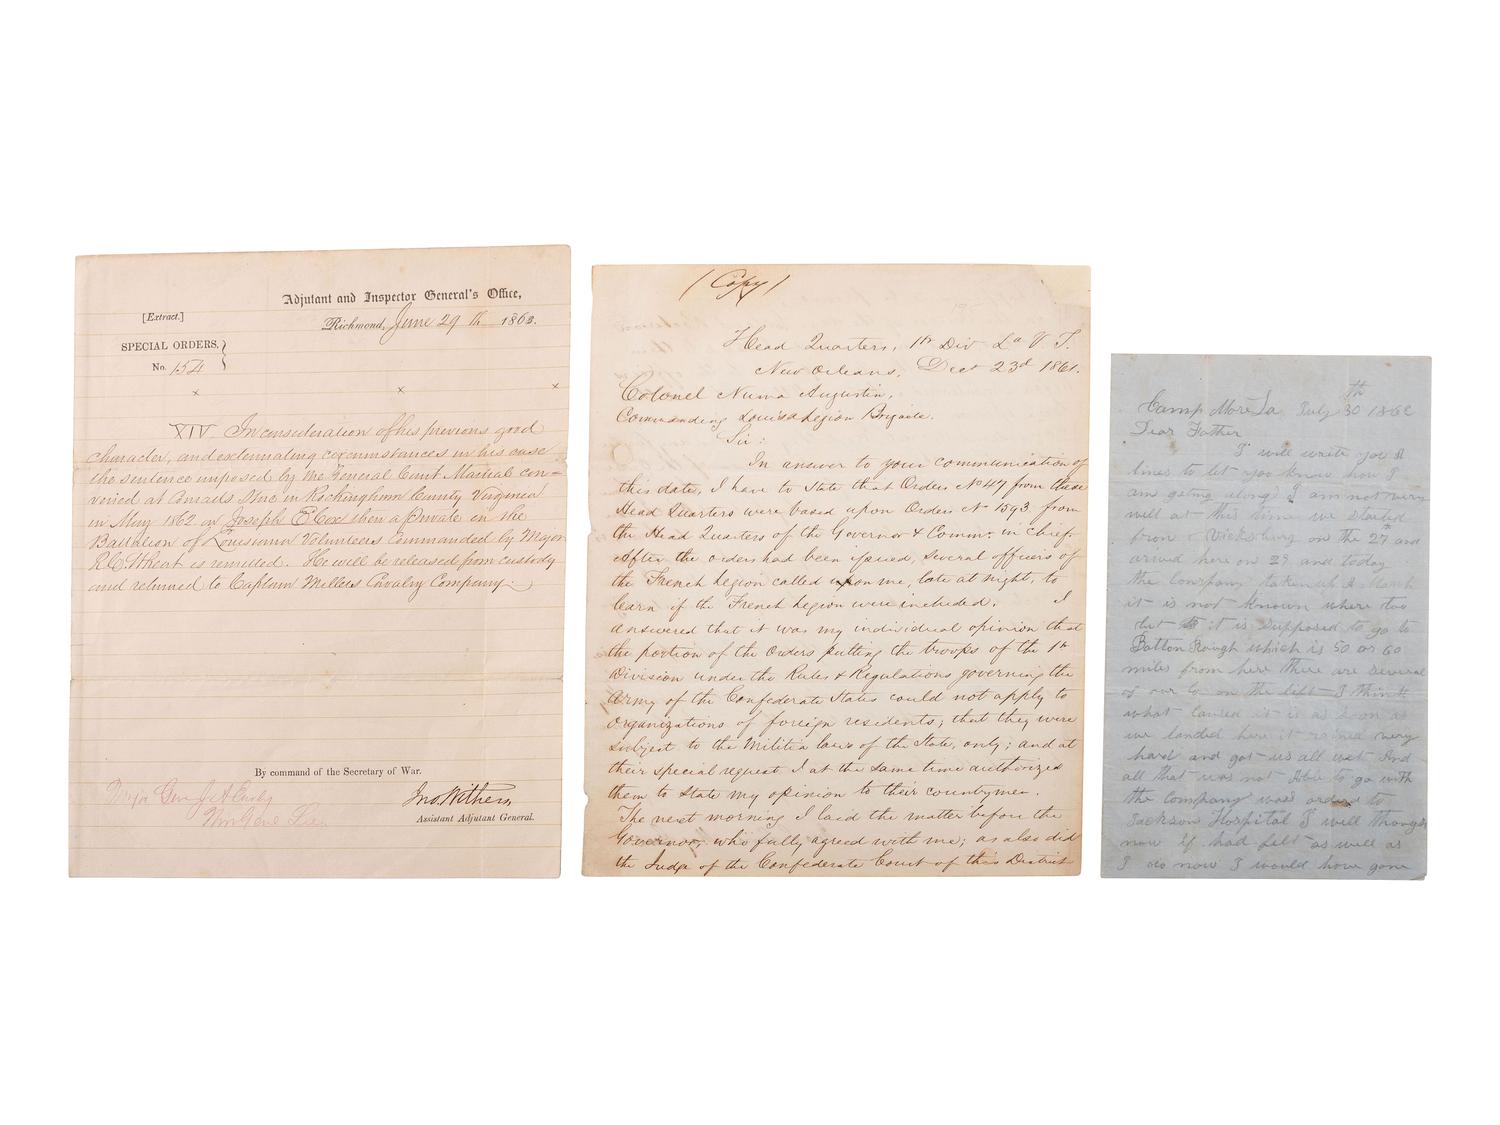 Adjutant and Inspector General's Office,
[Extract.]
Richmond, June 29 th 1863.
SPECIAL ORDERS,
No. 154
x x x
XIV. In consideration of his previous good
character, and extenuating circumstances in his case
the sentence imposed by the General Court Martial con-
vened at Conrads Store in Rockingham County Virginia
in May 1862 on Joseph E Cox then a private in the
Battalion of Louisiana Volunteers commanded by Major
R.C. Wheat is remitted. He will be released from custody
and returned to Captain Millers Cavalry Company.
By command of the Secretary of War.
Jno. Withers
Assistant Adjutant General.
Major Gen J A Early
Thro Gene Lee
(Copy)
Head Quarters, 1st Div La V. T.
New Orleans, Dect 23d 1861.
Colonel Numa Augustin,
Commanding Louisa Legion Brigade.
Sir:
In answer to your communication of
this date, I have to State that Orders No 47 from these
Head Quarters were based upon Orders No 1593 from
the Head Quarters of the Governor & Comm. in chief.
After the orders had been issued, several officers of
the French Legion called upon me, late at night, to
learn if the French Legion were included. I
answered that it was my individual opinion that
the portion of the Orders putting the troops of the 1st
Division under the Rules & Regulations governing the
Army of the Confederate States could not apply to
organizations of foreign residents; that they were
subject to the Militia laws of the State, only; and at
their special request I at the same time authorized
them to State my opinion to their countrymen.
The next morning I laid the matter before the
Governor, who fully agreed with me; as also did
the Judge of the Confederate Court of this District
Camp More La July 30th 1862
Dear Father
I will write you a
lines to let you know how I
am geting along I am not very
well at this time we started
from Vicksburg on the 27th and
arived here on 29 and today
the Company taken up a March
it is not known where too
but it is supposed to go to
Batton Rough which is 50 or 60
miles from here there are several
of our Co on the left I think
what caused it is as soon as
we landed here it rained very
hard and got us all wet And
all that was not Able to go with
the Company was order to
Jackson Hospital I will though
now if had felt as well as
I do now I would have gone